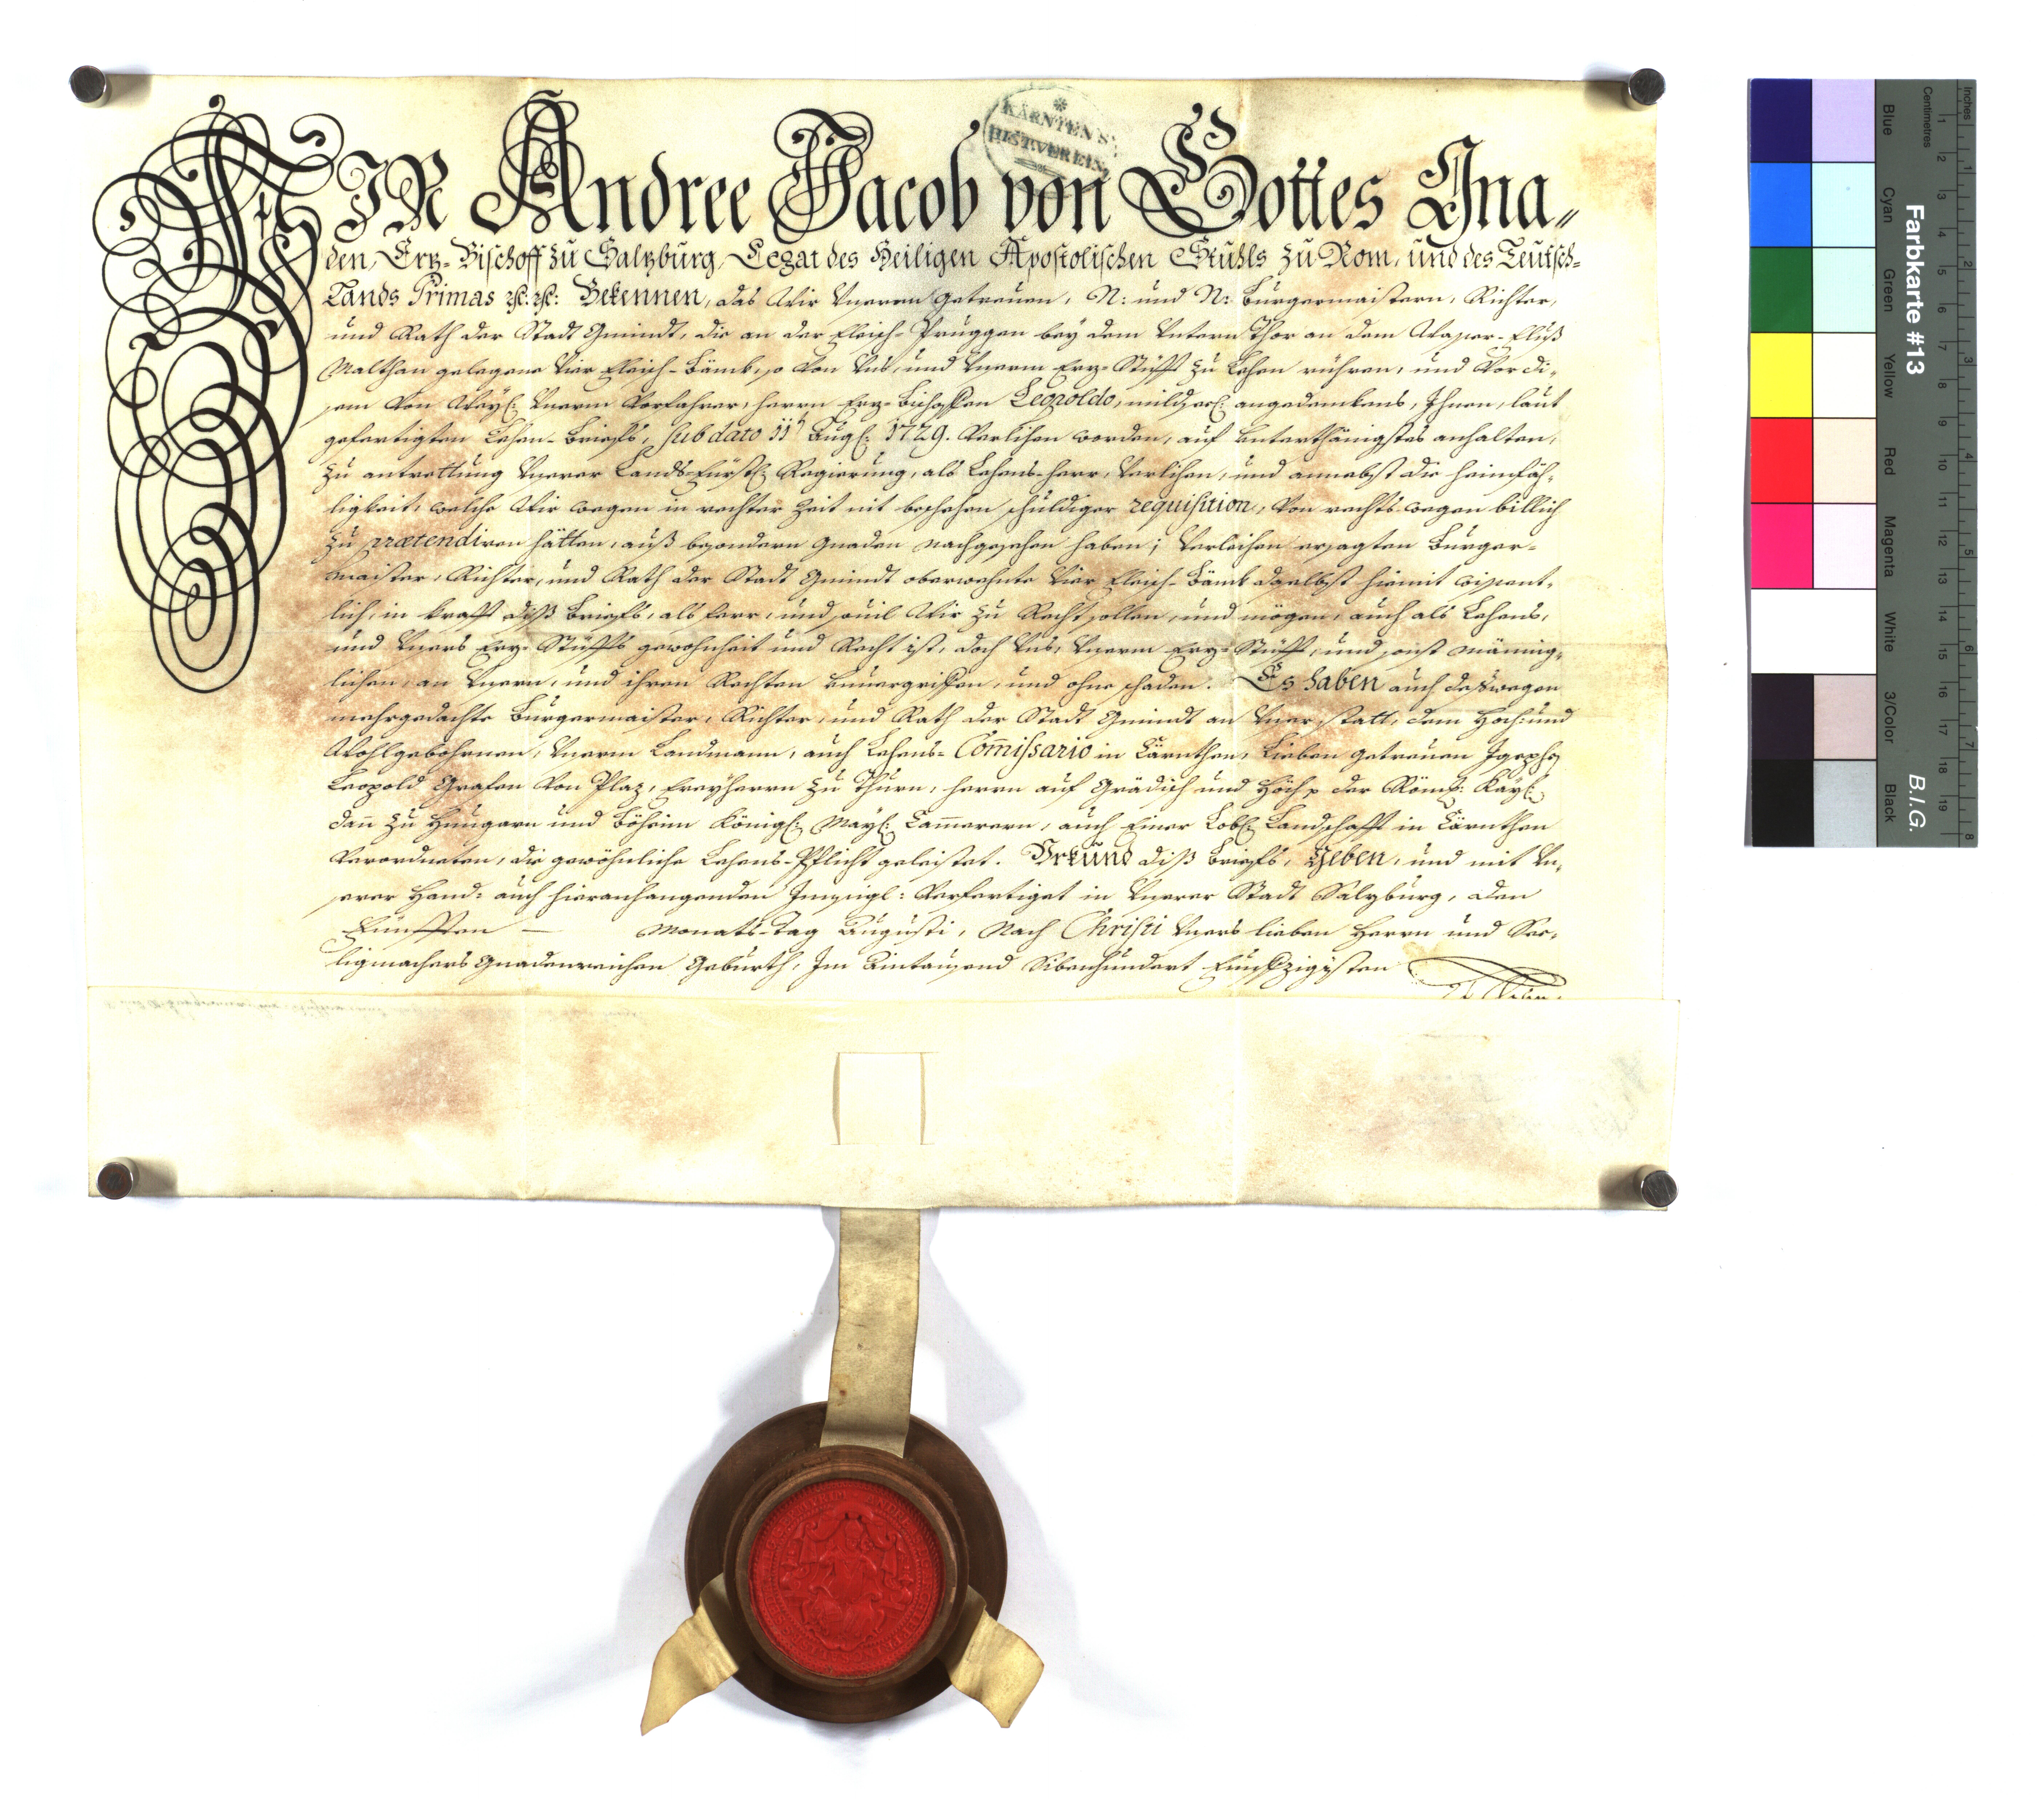 WIR Andree Jacob von Gottes Gna„
den, Erz-Bischoff zu Salzburg, Legat des Heiligen Apostolischen Stuhls zu Rom, und des Teutsch-
Lands Primas ꝛc. ꝛc: Bekennen, das Wir Vnsern getreuen, N: und N: Burgermaistern, Richter,
und Rath der Stadt Gmündt, die an der Fleisch-Pruggen bey dem Vntern Thor an dem Wasser-Fluß
Malthan gelegene Vier Fleisch-Bänk, so von Vns, und Vnserm Erz-Stüfft zu Lehen rühren, und vor di-
sem von Weyl: Vnserm Vorfahrer, Herrn Erz-Bischoffen Leopoldo, mildsel: angedenkens, Ihnen, laut
gefertigten Lehen-Briefs, sub dato 11t Augl: 1729. verlihen worden, auf unterthänigstes anhalten,
zu antrettung Vnserer Lands-Fürstl: Regierung, als Lehens-Herr, verlihen, und annebst die Heimfäh-
ligkeit, welche Wir wegen in rechter Zeit nit beschehen schuldiger requisition, von rechts-wegen billich
zu prætendiren hätten, auß besondern Gnaden nachgesehen haben; Verleihen ersagten Burger-
maister, Richter, und Rath der Stadt Gmündt oberwehnte Vier Fleisch-Bänk daselbst hiemit wissent-
lich, in krafft diß Briefs, als ferr, und souil Wir zu Recht sollen, und mögen, auch als Lehens,
und Vnsers Erz-Stüffts gewohnheit und Recht ist, doch Vns, Vnserm Erz-Stüfft, und sonst männig-
lichen, an Vnsern, und ihren Rechten unuergriffen, und ohne schaden. Es haben auch deßwegen
mehrgedachte Burgermaister, Richter, und Rath der Stadt Gmündt an Vnser statt, dem Hoch: und
Wohlgebohrnen, Vnserm Landmann, auch Lehens-Comissario in Cärnthen, Lieben getreuen Joseph
Leopold Grafen von Plaz, Freyherrn zu Thurn, Herrn auf Grädisch und Höch, der Röm: Kayl:
dan zu Hungarn und Böheim Königl: Mayl: Cammerern, auch Einer Lobl: Landschafft in Cärnthen
Verordneten, die gewöhnliche Lehens-Pflicht geleistet. Vrkund diß Briefs, Geben, und mit Vn-
serer Hand: auch hieranhangenden Innsigl: verfertiget in Vnserer Stadt Salzburg, den
Fünfften — Monats-Tag Augusti, Nach Christi Vnsers lieben Herrn und See-
ligmachers Gnadenreichen Geburth, Im Aintausend Sibenhundert Funffzigisten
KÄRNTEN'S
HIST. VEREIN
Farbkarte #13
B.I.G.
Blue
Cyan
Green
Yellow
Red
Magenta
White
3/Color
Black
Centimetres
Inches
1 2 3 4 5 6 7 8 9 10 11 12 13 14 15 16 17 18 19
1 2 3 4 5 6 7 8